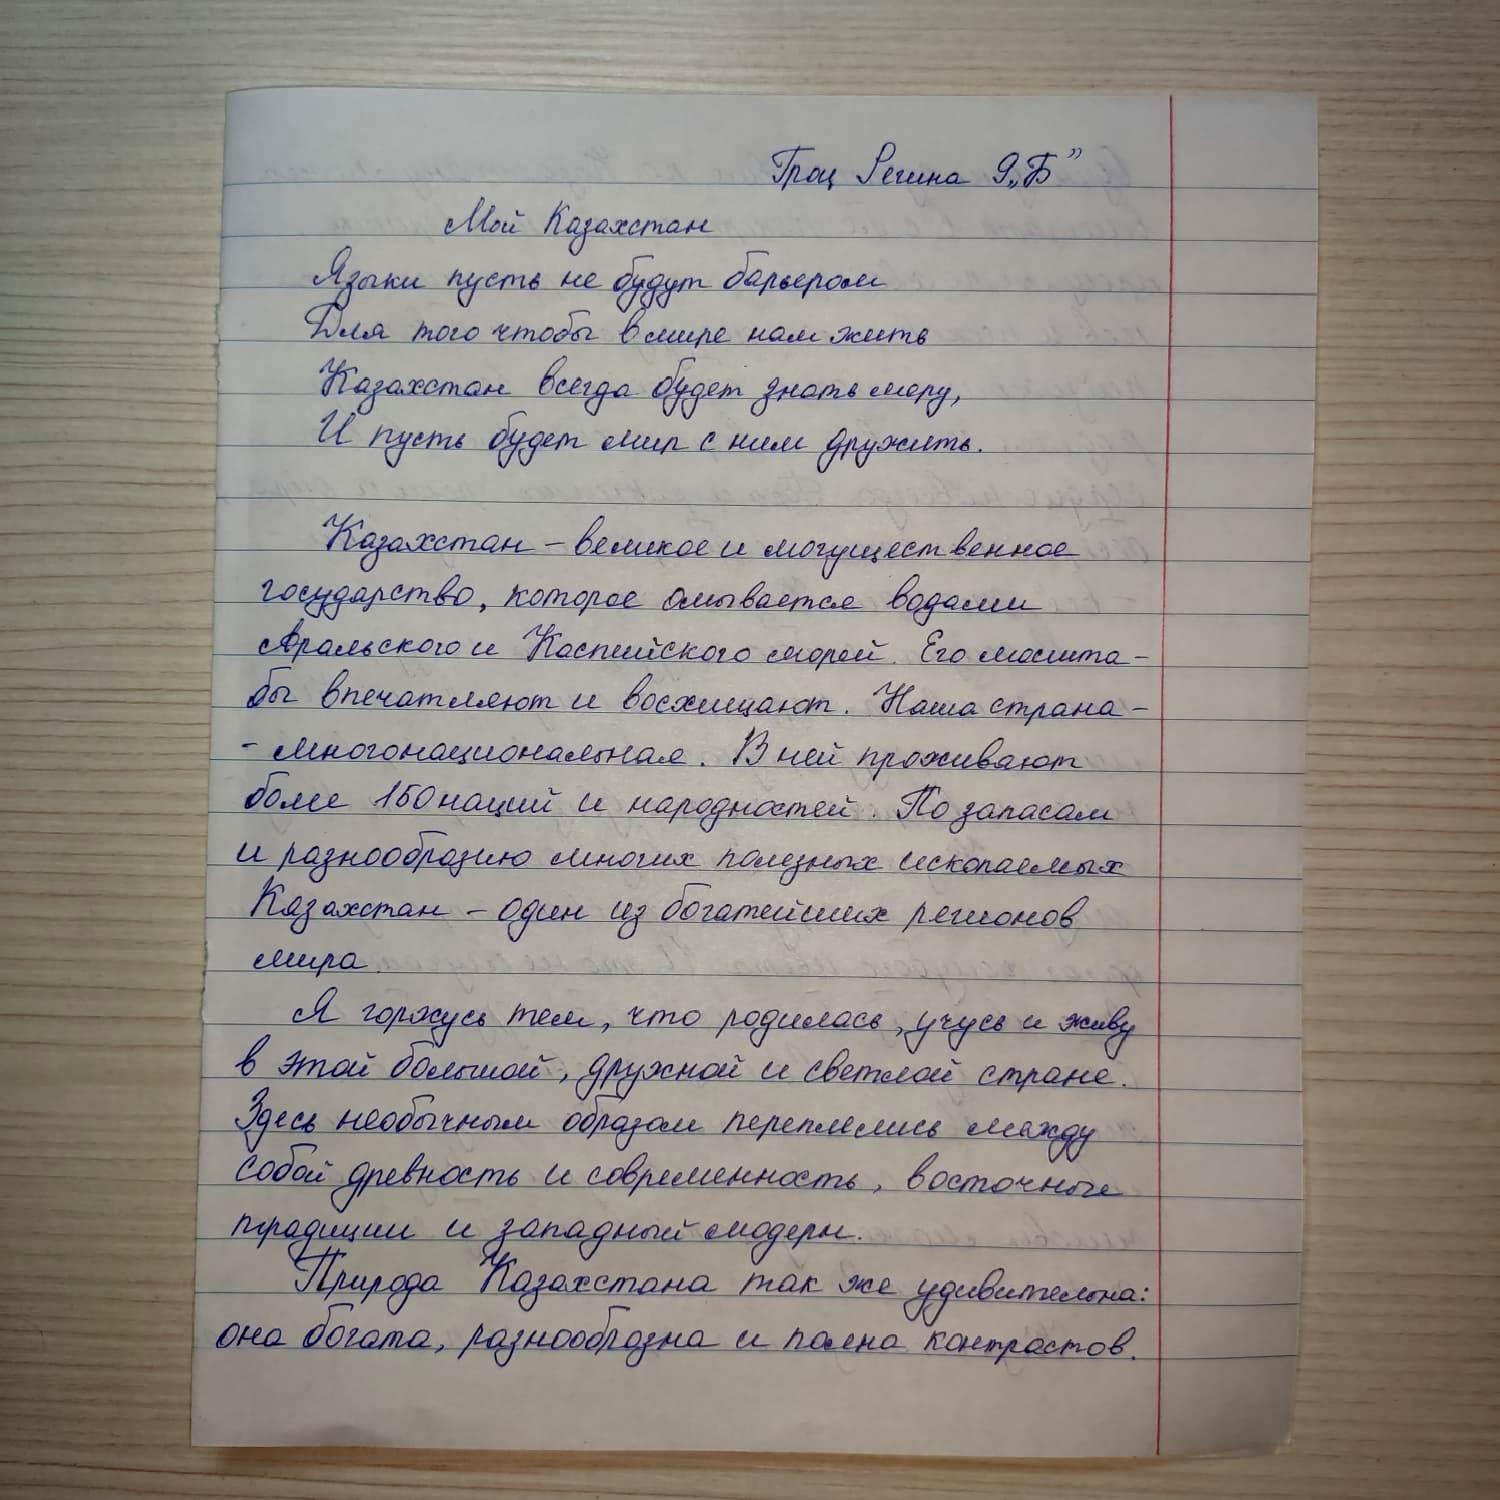 Грац Регина 9 „Б”
Мой Казахстан
Языки пусть не будут барьером
Для того чтобы в мире нам жить
Казахстан всегда будет знать меру,
И пусть будет мир с ним дружить.
Казахстан – великое и могущественное
государство, которое омывается водами
Аральского и Каспийского морей. Его масшта-
бы впечатляют и восхищают. Наша страна -
- многонациональная. В ней проживают
более 150 наций и народностей. По запасам
и разнообразию многих полезных ископаемых
Казахстан – один из богатейших регионов
мира.
Я горжусь тем, что родилась, учусь и живу
в этой большой, дружной и светлой стране.
Здесь необычным образом переплелись между
собой древность и современность, восточные
традиции и западный модерн.
Природа Казахстана так же удивительна:
она богата, разнообразна и полна контрастов.